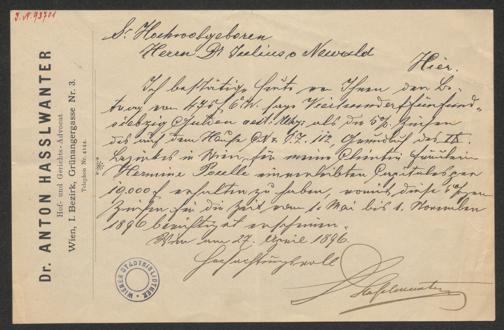 J. N. 93701
Dr. ANTON HASSLWANTER
Hof- und Gerichts-Advocat
Wien, I. Bezirk, Grünangergasse Nr. 3.
Telephon Nr.
Sr Hochwohlgeboren
Herrn Dr Julius v Newald
Hier.
Ich bestätige heute von Ihnen den Be-
trag von 475 f 6 Kr. sage Vierhundertfünfund-
siebzig Gulden als die 5% Zinsen
des auf dem Hause 112, Grundbuch des IX.
Bezirkes in Wien, für meine Clientin Fräulein
Hermine einverleibten Capitales per
f erhalten zu haben, womit diese 5%gen
Zinsen für die Zeit vom 1. Mai bis 1. November
1896 berichtigt erscheinen.
Wien am 27. April 1896.
Hochachtungsvoll
Dr Hasslwanter
WIENER STADTBIBLIOTHEK